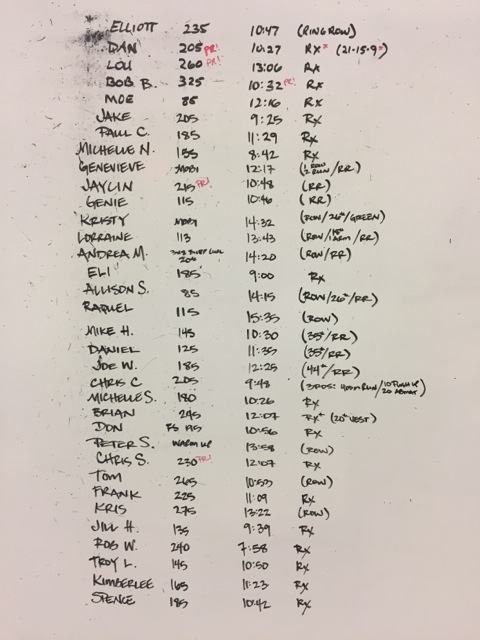 ELLIOTT 235 10:47 (RING ROW)
DAN 205 PR! 10:27 RX* (21-15-9*)
LOU 260 PR! 13:06 RX
BOB B. 325 10:32 PR! RX
MOE 85 12:16 RX
JAKE 205 9:25 RX
PAUL C. 185 11:29 RX
MICHELLE N. 155 8:42 RX
GENEVIEVE MOBI 12:17 (1 ROW 2 RUN/RR)
JAYLIN 215 PR! 10:48 (RR)
GENIE 115 10:46 (RR)
KRISTY MOBI 14:32 (ROW/26#/GREEN)
LORRAINE 113 13:43 (ROW/RR)
ANDREA M. 14:20 (ROW/RR)
ELI 185 9:00 RX
ALLISON S. 85 14:15 (ROW/26#/RR)
RAQUEL 115 15:35 (ROW)
MIKE H. 145 10:30 (35#/RR)
DANIEL 125 11:35 (35#/RR)
JOE W. 185 12:25 (44#/RR)
CHRIS C 205 9:48
MICHELLE S. 180 10:26 RX
BRIAN 245 12:07 RX+ (20# VEST)
DON FS 195 10:56 RX
PETER S. WARM UP 13:58 (ROW)
CHRIS S. 230 PR! 12:07 RX
TOM 265 10:53 (ROW)
FRANK 225 11:09 RX
KRIS 275 13:22 (ROW)
JILL H. 135 9:39 RX
ROB W. 240 7:58 RX
TROY L. 145 10:50 RX
KIMBERLEE 165 11:23 RX
SPENCE 185 10:42 RX